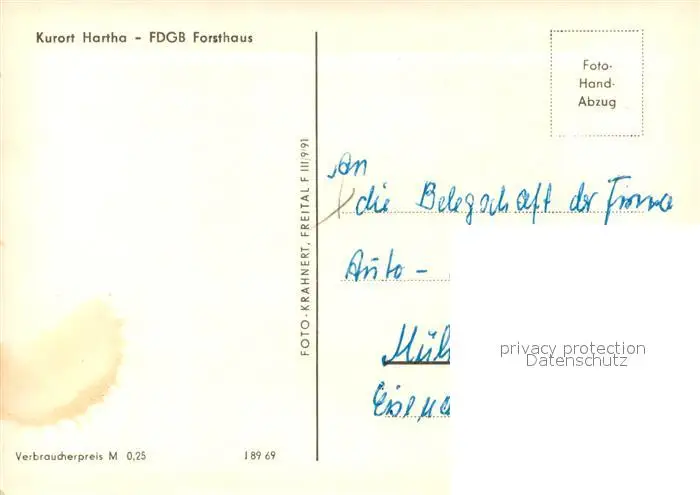 Kurort Hartha – FDGB Forsthaus
Foto-
Hand-
Abzug
FOTO-KRAHNERT, FREITAL F III/9/91
An
die Belegschaft der Firma
Auto –
privacy protection
Datenschutz
Verbraucherpreis M 0,25
J 89 69